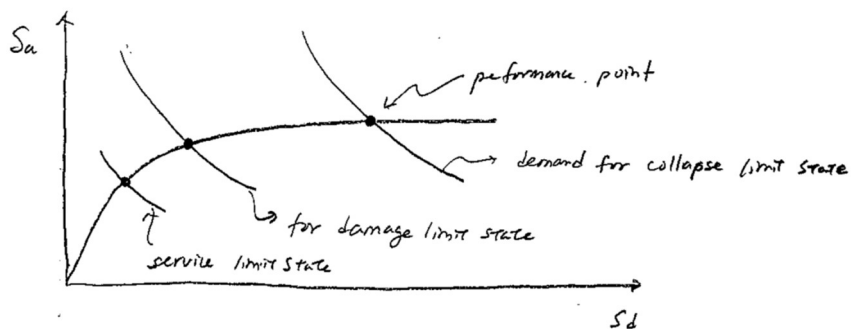 Sa
peformance point
demand for collapse limit state
for damage limit state
service limit state
Sd